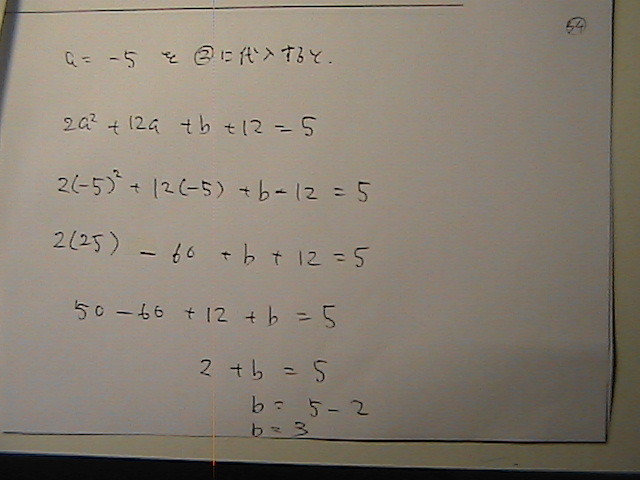 54
a = -5 を ②に代入すると.
2a² + 12a + b + 12 = 5
2(-5)² + 12(-5) + b - 12 = 5
2(25) - 60 + b + 12 = 5
50 - 60 + 12 + b = 5
2 + b = 5
b = 5 - 2
b = 3